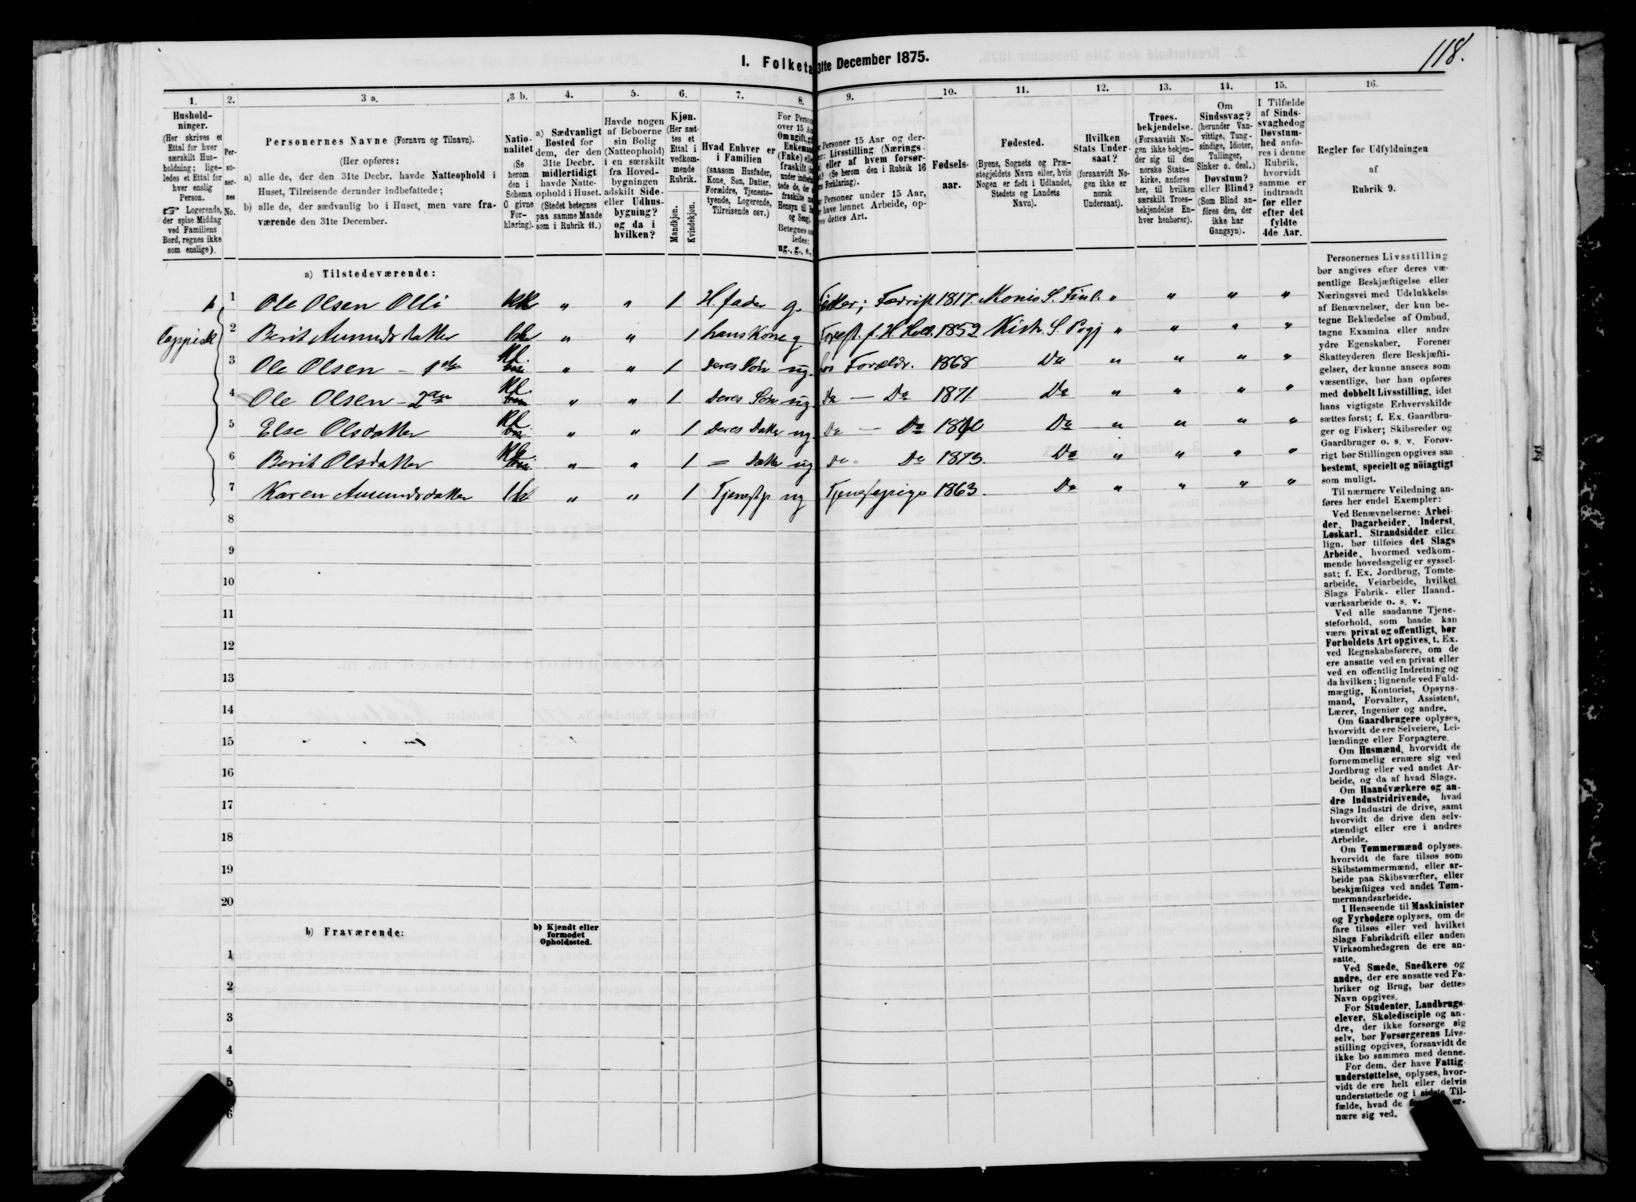 118.
I. Folketa 31te December 1875.
1. 2. 3 a. 3 b. 4. 5. 6. 7. 8. 9. 10. 11. 12. 13. 14. 15. 16.
Hushold-
ninger.
(Her skrives et
Ettal for hver
særskilt Hus-
holdning; lige-
ledes et Ettal for
hver enslig
Person.
Logerende,
der spise Middag
ved Familiens
Bord, regnes ikke
som enslige).
Per-
so-
ner-
nes
No.
Personernes Navne (Fornavn og Tilnavn).
(Her opføres:
a) alle de, der den 31te Decbr. havde Natteophold i
Huset, Tilreisende derunder indbefattede;
b) alle de, der sædvanlig bo i Huset, men vare fra-
værende den 31te December.
Natio-
nalitet
(Se
herom
den i
Schema
G givne
For-
klaring).
a) Sædvanligt
Bosted for
dem, der den
31te Decbr.
midlertidigt
havde Natte-
ophold i Huset.
(Stedet betegnes
paa samme Maade
som i Rubrik 11.)
Havde nogen
af Beboerne
sin Bolig
(Natteophold)
i en særskilt
fra Hoved-
bygningen
adskilt Side-
eller Udhus-
bygning?
og da i
hvilken?
Kjøn.
(Her sæt-
tes et
Ettal i
vedkom-
mende
Rubrik.
Mandkjøn.
Kvindekjøn.
Hvad Enhver er
i Familien
(saasom Husfader,
Kone, Søn, Datter,
Forældre, Tjeneste-
tyende, Logerende,
Tilreisende osv.)
For Person
over 15 A
Om ugift, g
Enkeman
(Fnke) elle
fraskilt
Betegnes s
ledes:
ug., g., e.,
Personer 15 Aar og der-
Livsstilling (Nærings-
eller af hvem forsør-
(Se herom den i Rubrik 16
Forklaring).
Personer under 15 Aar,
have lønnet Arbeide, op-
dettes Art.
Fødsels-
aar.
Fødested.
(Byens, Sognets og Præ-
stegjeldets Navn eller, hvis
Nogen er født i Udlandet,
Stedets og Landets
Navn).
Hvilken
Stats Under-
saat?
(forsaavidt No-
gen ikke er
norsk
Undersaat).
Troes-
bekjendelse.
(Forsaavidt No-
gen ikke bekjen-
der sig til den
norske Stats-
kirke, anføres
her, til hvilken
særskilt Troes-
bekjendelse En-
hver henhører).
Om
Sindssvag?
(herunder Van-
vittige, Tung-
sindige, Idioter,
Tullinger,
Sinker o. desl.)
Døvstum?
eller Blind?
(Som Blind an-
føres den, der
ikke har
Gangsyn).
I Tilfælde
af Sinds-
svaghed og
Døvstum-
hed anfø-
res i denne
Rubrik,
hvorvidt
samme er
indtraadt
før eller
efter det
fyldte
4de Aar.
Regler for Udfyldningen
af
Rubrik 9.
a) Tilstedeværende:
1 Ole Olsen Olli " " 1 H.fader g. Fisker; 1817 " " " "
2 Berit Amundsdatter " " 1 hans Kone g 1852 " " " "
3 Ole Olsen - 1ste " " 1 deres Søn ug. hos Forældr. 1868 Do " " " "
4 Ole Olsen - 2den " " 1 Deres Søn ug. Do — Do 1871 Do " " " "
5 Else Olsdatter " " 1 Deres Datter ug. Do — Do Do " " " "
6 Berit Olsdatter " " 1 = Datter ug Do Do 1873. Do " " " "
7 Karen Amundsdatter " " 1 ug Tjenestepige 1863. Do " " " "
8
9
10
11
12
13
14
15
16
17
18
19
20
b) Fraværende:
b) Kjendt eller
formodet
Opholdssted.
1
2
3
4
5
6
Personernes Livsstilling
bør angives efter deres væ-
sentlige Beskjæftigelse eller
Næringsvei med Udelukkelse
af Benævnelser, der kun be-
tegne Beklædelse af Ombud,
tagne Examina eller andre
ydre Egenskaber. Forener
Skatteyderen flere Beskjæfti-
gelser, der kunne ansees som
væsentlige, bør han opføres
med dobbelt Livsstilling, idet
hans vigtigste Erhvervskilde
sættes først; f. Ex. Gaardbru-
ger og Fisker; Skibsreder og
Gaardbruger o. s. v. Forøv-
rigt bør Stillingen opgives saa
bestemt, specielt og nöiagtigt
som muligt.
Til nærmere Veiledning an-
føres her endel Exempler:
Ved Benævnelserne: Arbei-
der, Dagarbeider, Inderst,
Løskarl, Strandsidder eller
lign. bør tilføies det Slags
Arbeide, hvormed vedkom-
mende hovedsagelig er syssel-
sat; f. Ex. Jordbrug, Tomte-
arbeide, Veiarbeide, hvilket
Slags Fabrik- eller Haand-
værksarbeide o. s. v.
Ved alle saadanne Tjene-
steforhold, som baade kan
være privat og offentligt, bør
Forholdets Art opgives, t. Ex.
ved Regnskabsførere, om de
ere ansatte ved en privat eller
ved en offentlig Indretning og
da hvilken; lignende ved Fuld-
mægtig, Kontorist, Opsyns-
mand, Forvalter, Assistent,
Lærer, Ingeniør og andre.
Om Gaardbrugere oplyses,
hvorvidt de ere Selveiere, Lei-
lændinge eller Forpagtere.
Om Husmænd, hvorvidt de
fornemmelig ernære sig ved
Jordbrug eller ved andet Ar-
beide, og da af hvad Slags.
Om Haandværkere og an-
dre Industridrivende, hvad
Slags Industri de drive, samt
hvorvidt de drive den selv-
stændigt eller ere i andres
Arbeide.
Om Tømmermænd oplyses,
hvorvidt de fare tilsøs som
Skibstømmermænd, eller ar-
beide paa Skibsværfter, eller
beskjæftiges ved andet Tøm-
mermandsarbeide.
I Henseende til Maskinister
og Fyrbødere oplyses, om de
fare tilsøs eller ved hvilket
Slags Fabrikdrift eller anden
Virksomhedsgren de ere an-
satte.
Ved Smede, Snedkere og
andre, der ere ansatte ved Fa-
briker og Brug, bør dettes
Navn opgives.
For Studenter, Landbrugs-
elever, Skoledisciple og an-
dre, der ikke forsørge sig
selv, bør Forsørgerens Livs-
stilling opgives, forsaavidt de
ikke bo sammen med denne.
For dem, der have Fattig-
understøttelse, oplyses, hvor-
vidt de ere helt eller delvis
understøttede og i sidste Til-
fælde, hvad de er-
nære sig ved.